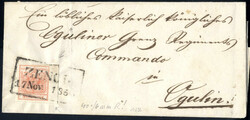 Ein Löbliches Kaiserlich Königliches
Oguliner Grenz Regiments
Commando
in
Ogulin.
ZENGG
17 Nov